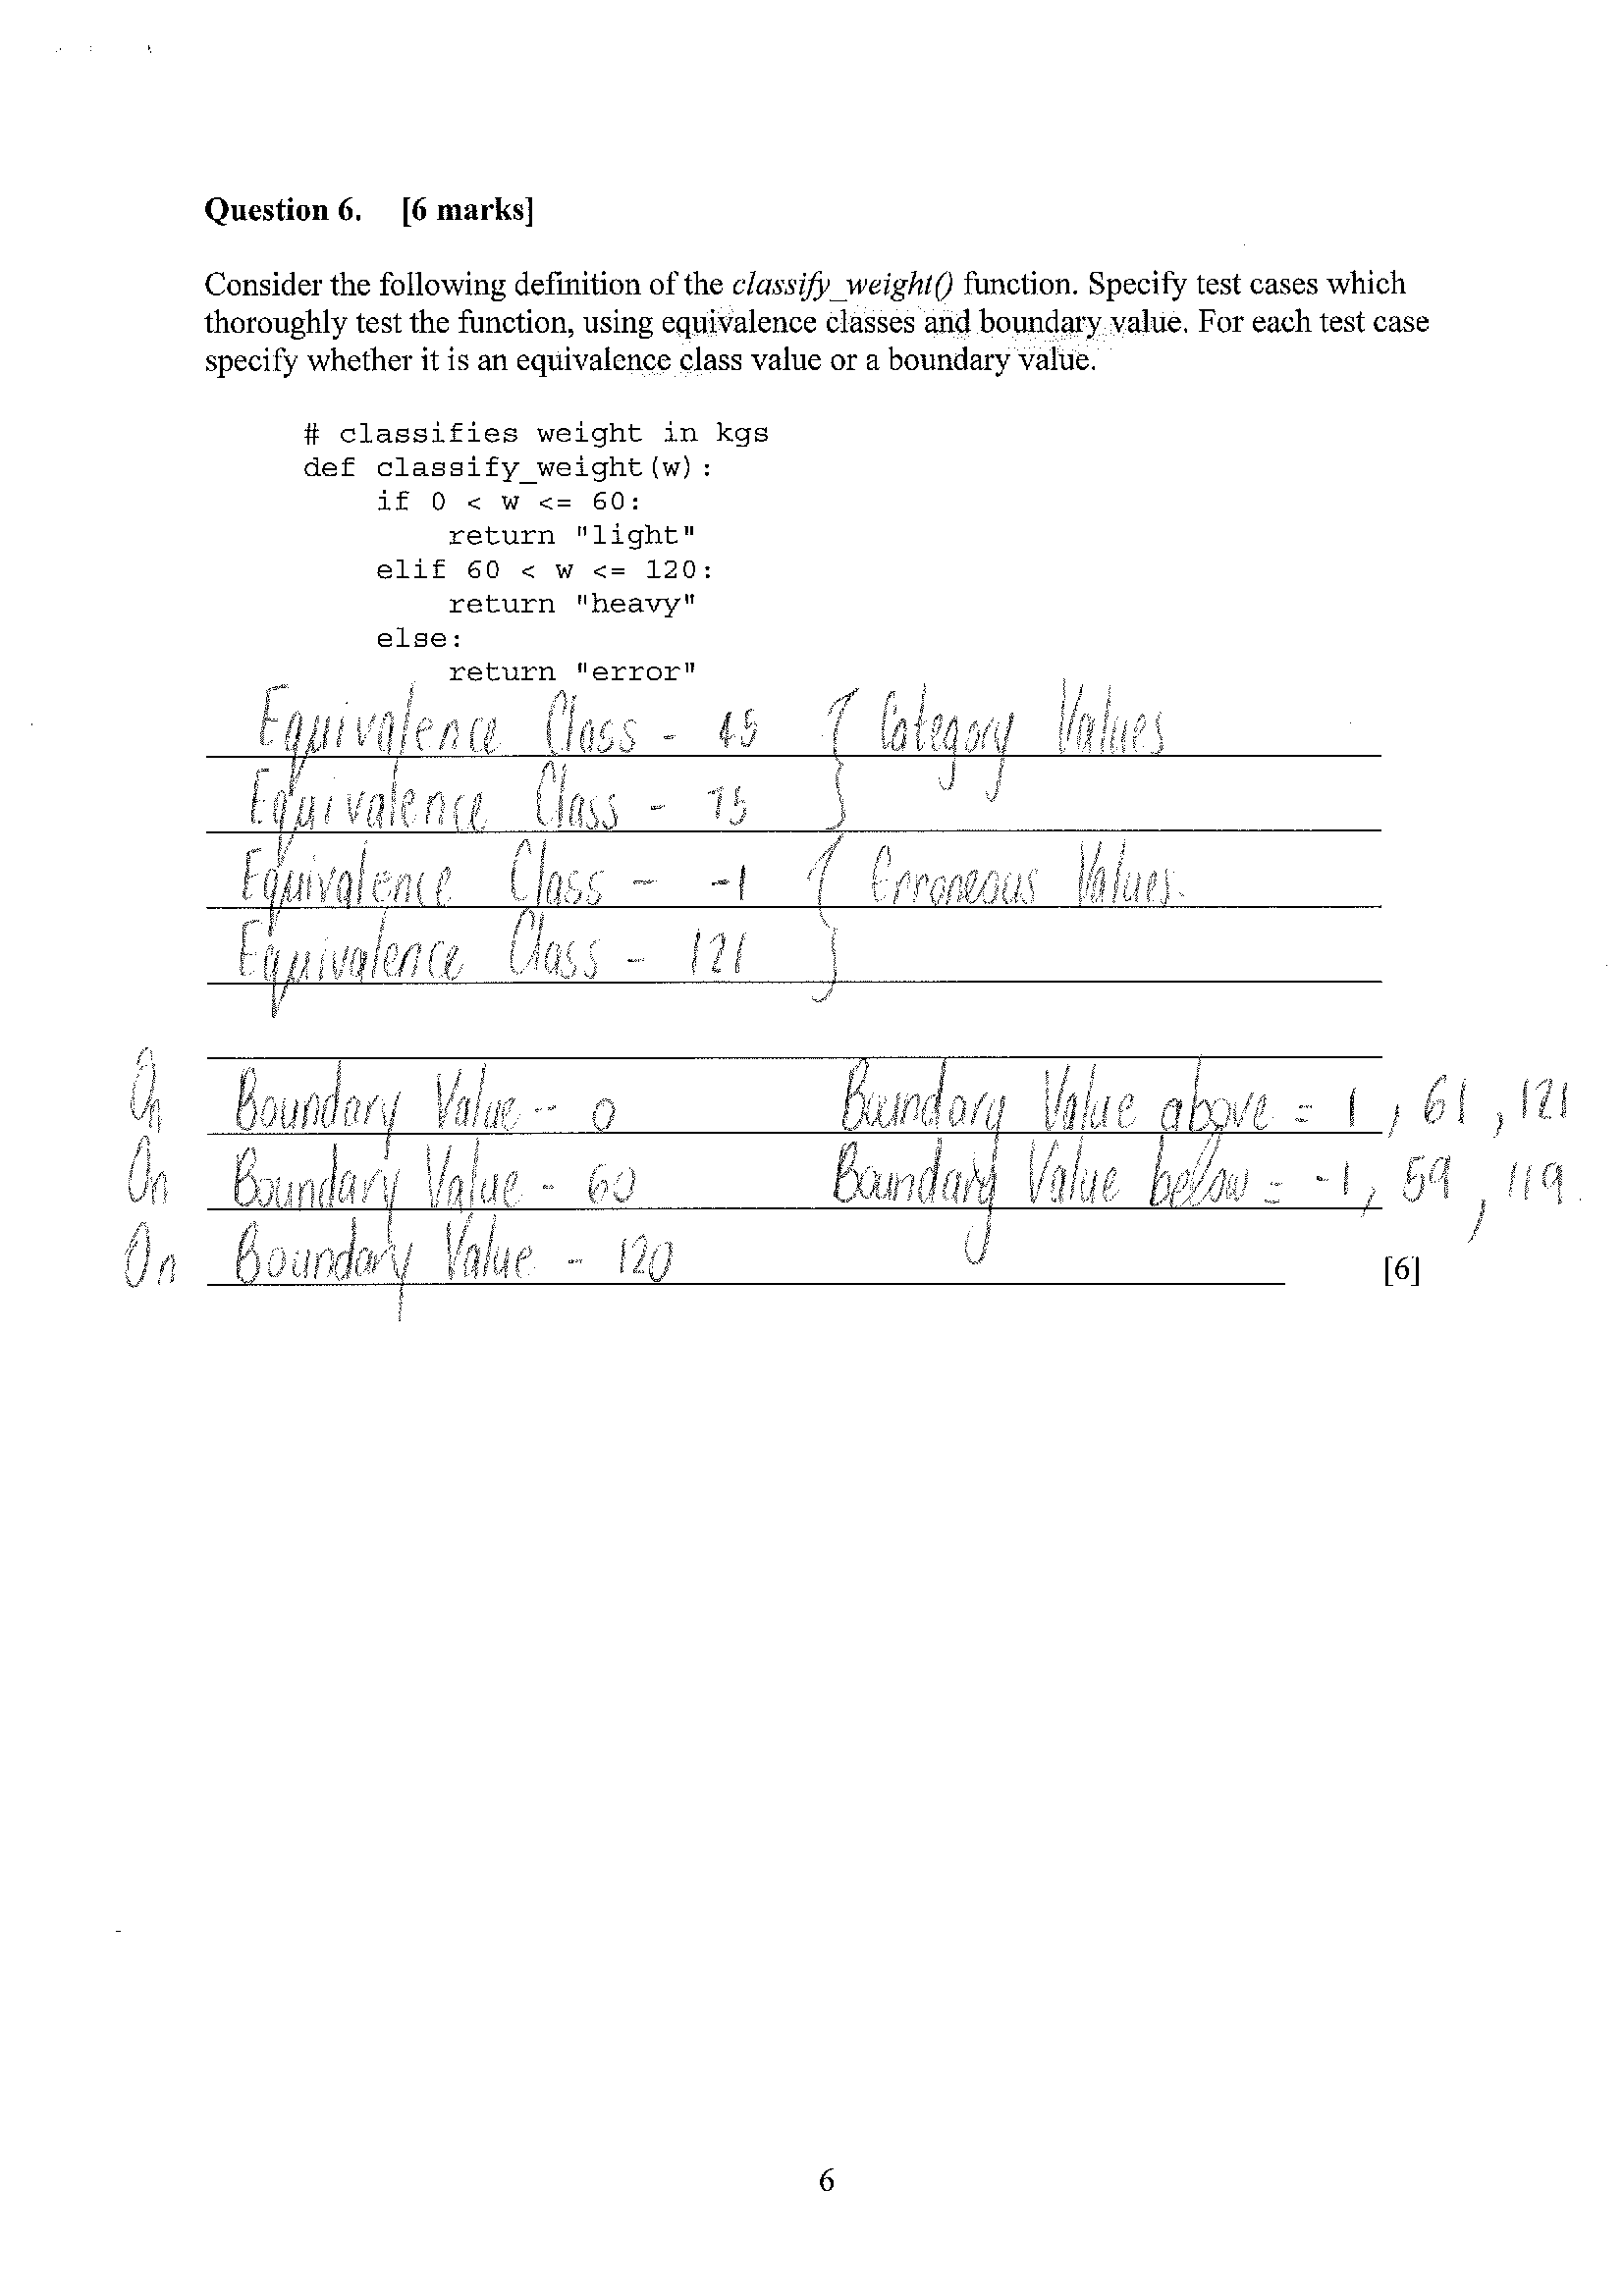 Question 6. [6 marks]
Consider the following definition of the classify_weight() function. Specify test cases which
thoroughly test the function, using equivalence classes and boundary value. For each test case
specify whether it is an equivalence class value or a boundary value.
# classifies weight in kgs
def classify_weight(w):
    if 0 < w <= 60:
        return "light"
    elif 60 < w <= 120:
        return "heavy"
    else:
        return "error"
Equivalence Class - 45 } Category Values
Equivalence Class - 75
Equivalence Class - -1 } Erroneous Values.
Equivalence Class - 121
On Boundary Value - 0 Boundary Value above = 1, 61, 121
On Boundary Value - 60 Boundary Value below = -1, 59, 119.
On Boundary Value - 120 [6]
6